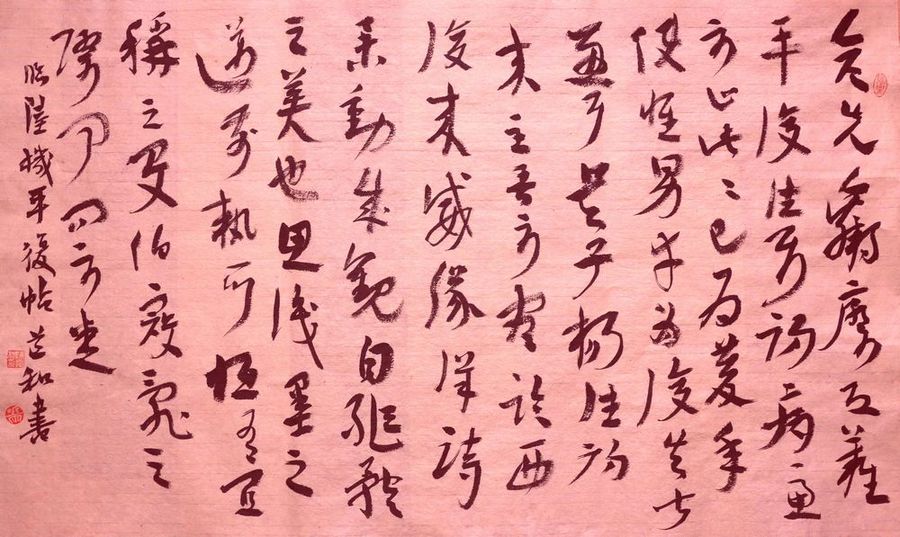 彦先羸瘵恐難
平復往屬初病慮
不止此々已為慶承
使唯男幸為復失前
憂耳吳子楊往初
来主吾不能盡臨西
復来威儀詳跱
舉動成觀自軀體
之美也思識量之
邁前執所恒有宜
稱之夏伯榮寇亂之
際聞問不悉
臨陸機平復帖 和書